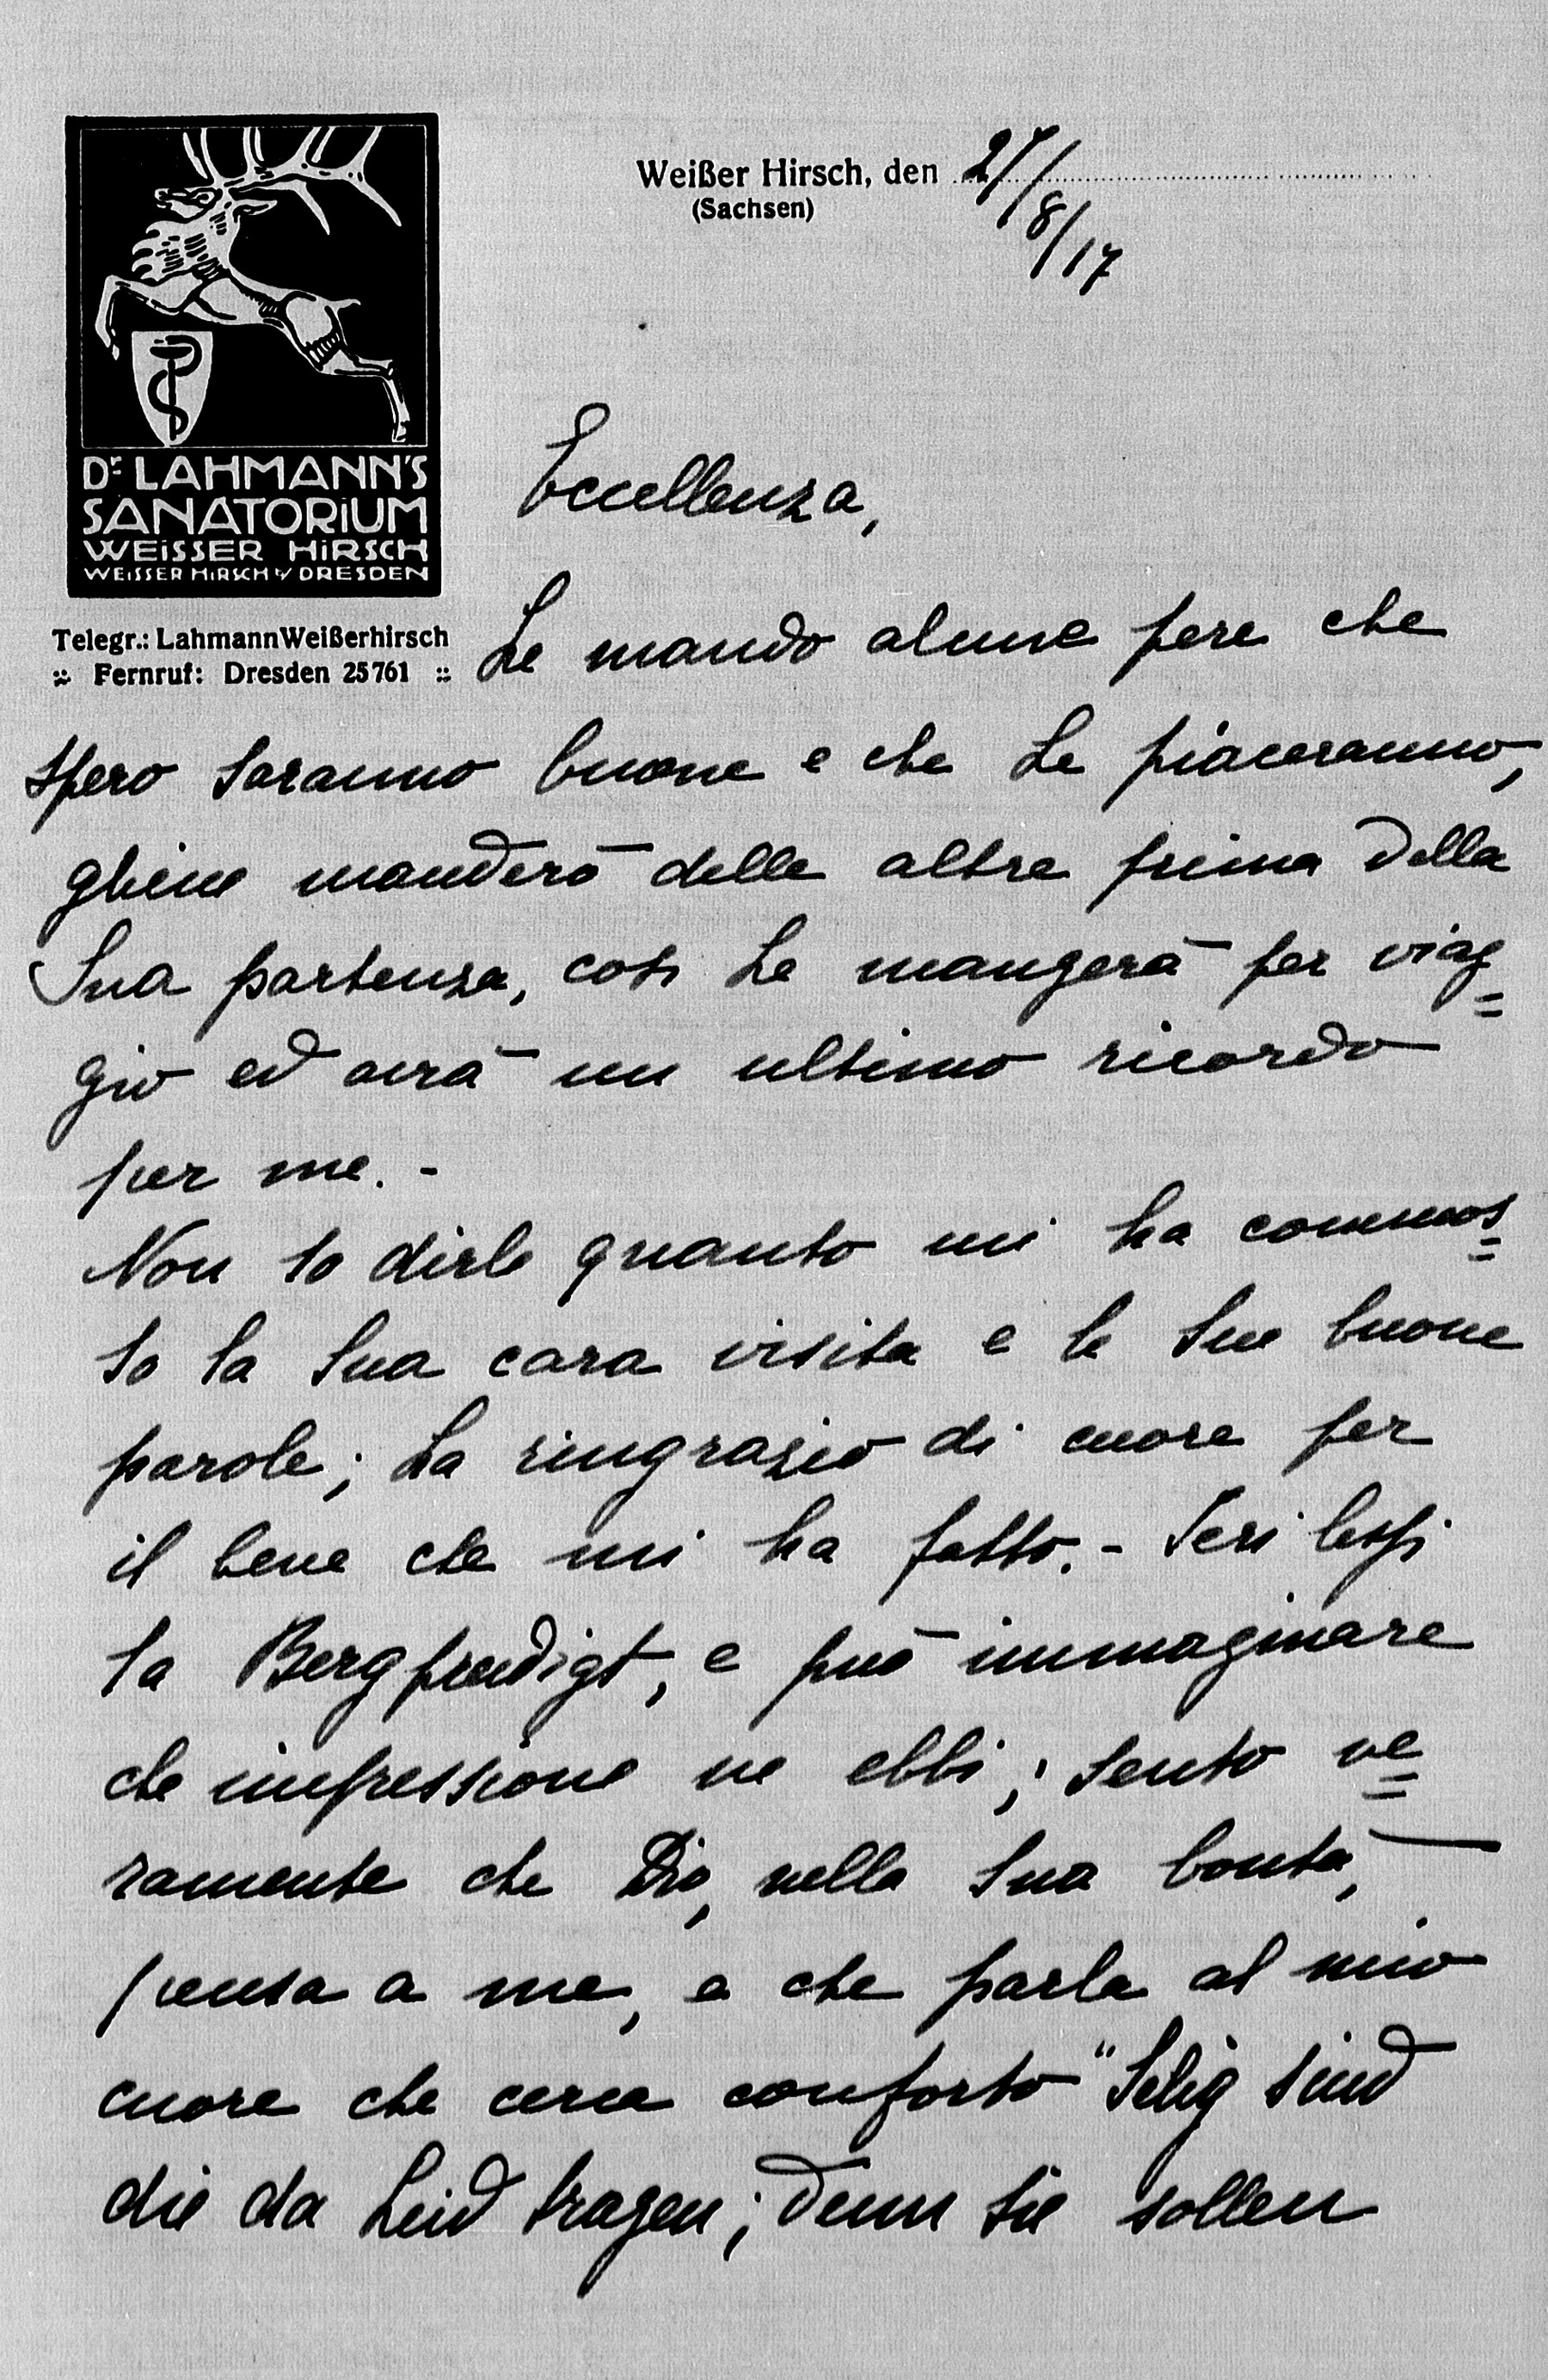 Weißer Hirsch, den 27/8/17
(Sachsen)
Dr. LAHMANN'S
SANATORIUM
WEISSER HIRSCH
WEISSER HIRSCH b/ DRESDEN
Telegr.: LahmannWeißerhirsch
:: Fernruf: Dresden 25761 ::
Eccellenza,
Le mando alcune pere che
spero saranno buone e che Le piaceranno,
gliene manderò delle altre prima della
Sua partenza, così Le mangerà per viag=
gio ed avrà un ultimo ricordo
per me. -
Non so dirle quanto mi ha commos=
so la Sua cara visita e le Sue buone
parole; La ringrazio di cuore per
il bene che mi ha fatto. - Ieri lessi
la Bergpredigt, e può immaginare
che impressione ne ebbi; sento ve=
ramente che Dio, nella Sua bontà,
pensa a me, e che parla al mio
cuore che cerca conforto "Selig sind
die da Leid tragen; denn sie sollen